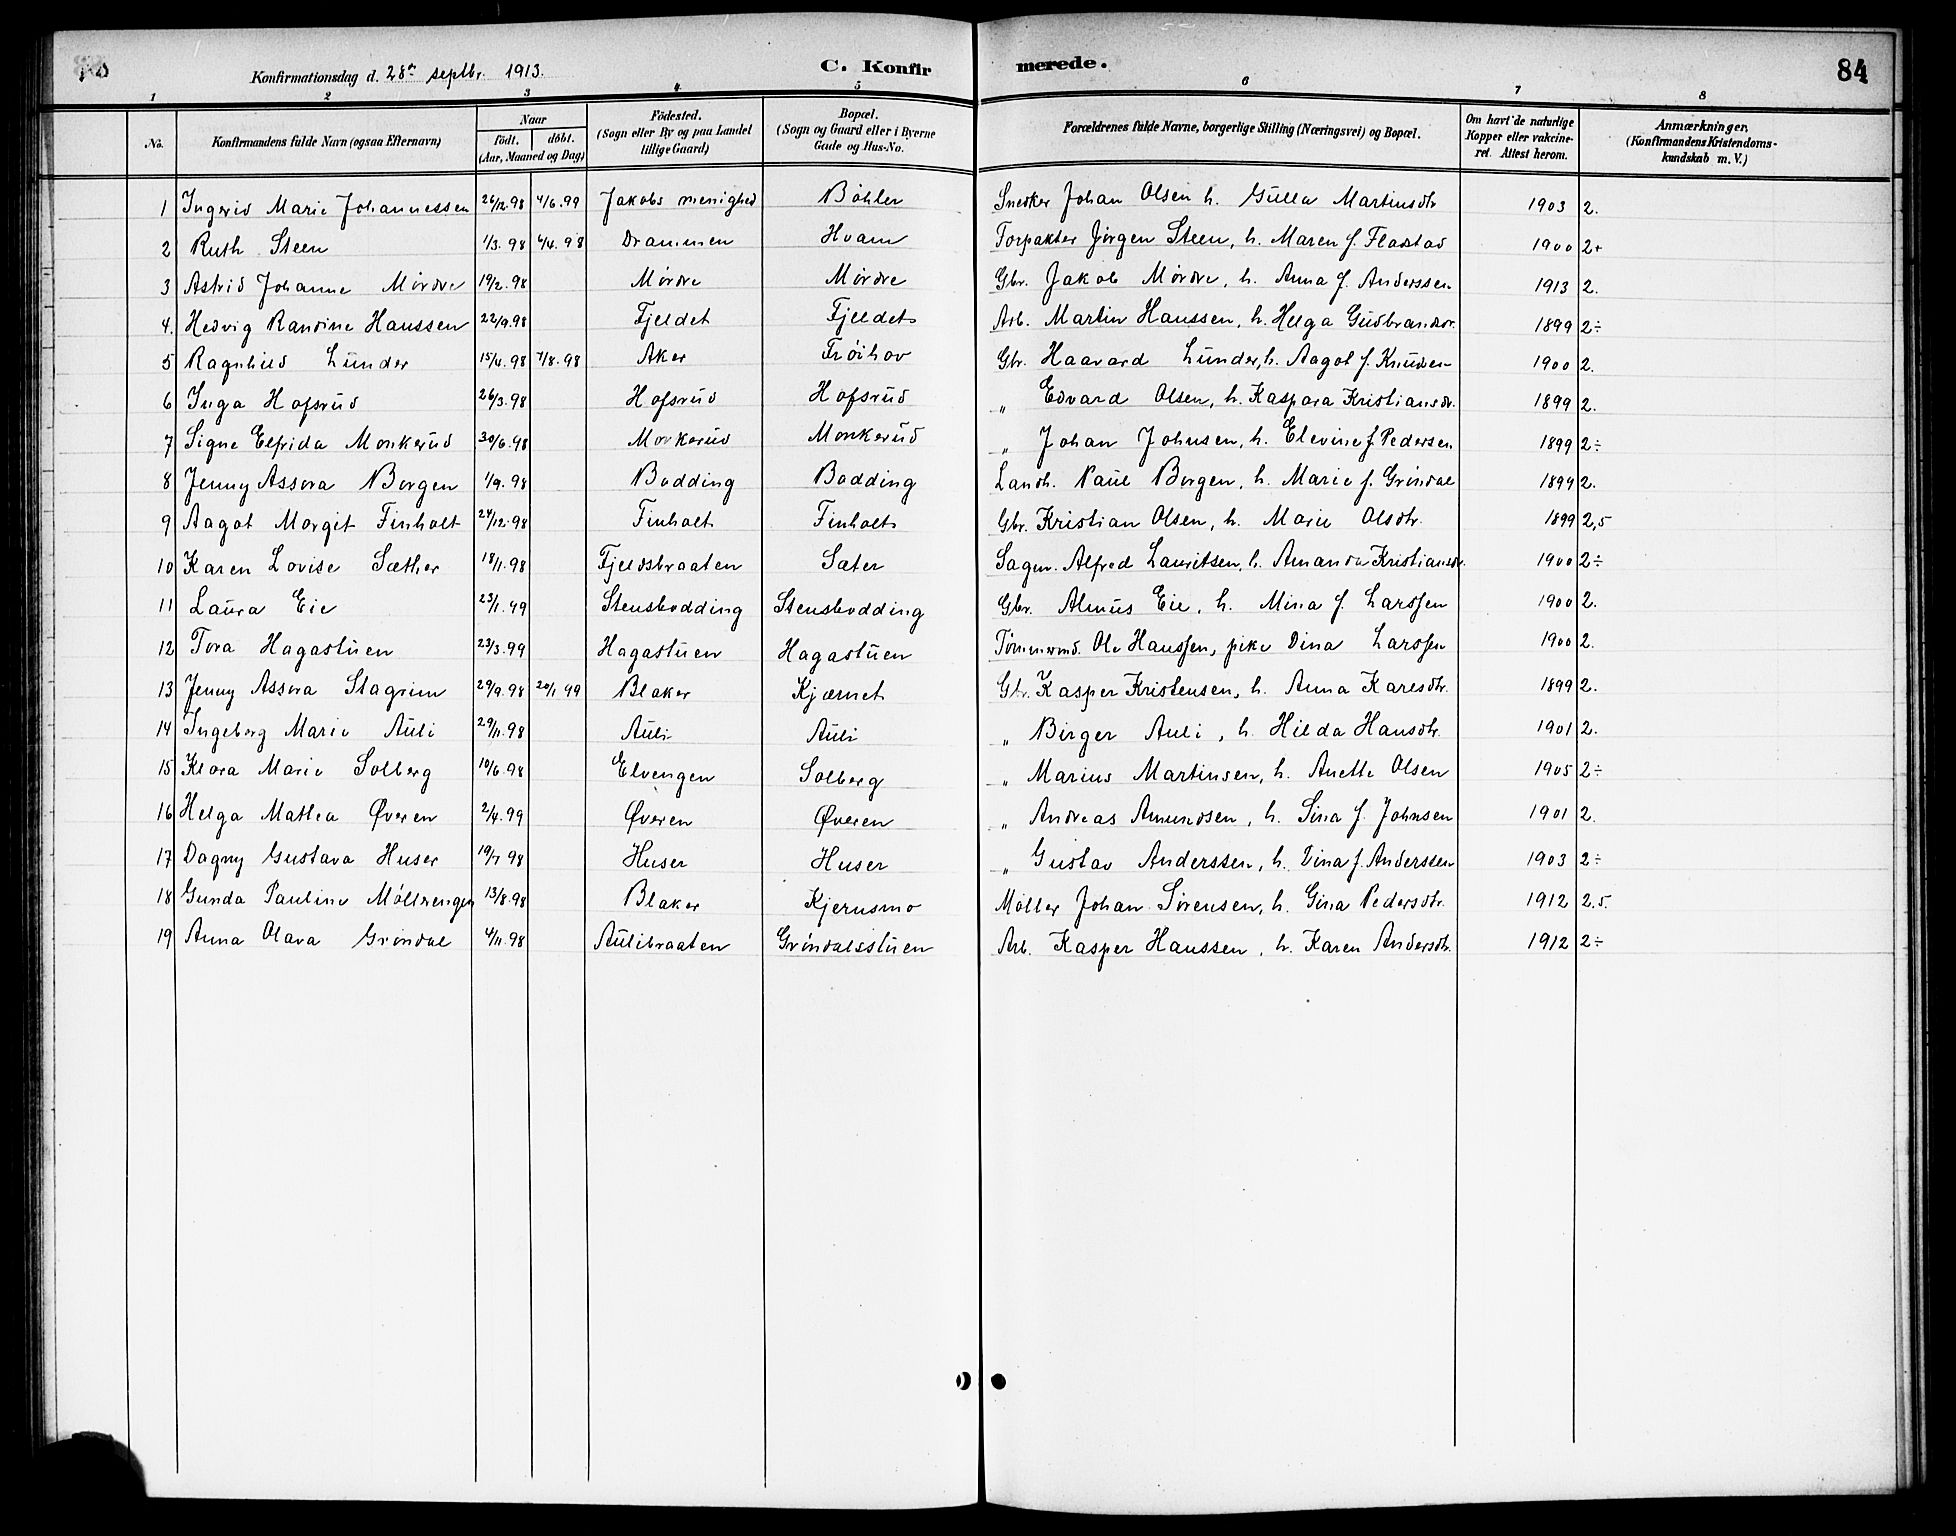 Konfirmationsdag d. 28de septbr. 1913. C. Konfirmerede. 84
1 2 3 4 5 6 7 8
No. Konfirmandens fulde Navn (ogsaa Efternavn) Naar født. døbt. (Aar, Maaned og Dag) Födested. (Sogn eller By og paa Landet tillige Gaard) Bopæl. (Sogn og Gaard eller i Byerne Gade og Hus-No. Forældrenes fulde Navne, borgerlige Stilling (Næringsvei) og Bopæl. Om havt de naturlige Kopper eller vakcineret. Attest herom. Anmærkninger. (Konfirmandens Kristendomskundskab m. V.)
1 Ingerid Marie Johannessen 26/12.98 4/6.99 Jakobs menighed Bøhler Snedker Johan Olsen h. Gulla Martinsdtr 1903 2.
2 Ruth Steen 1/3.98 /4.98 Drammen Hvam Torpakter Jørgen Steen, h. Maren f. Fladstad 1900 2+
3 Astrid Johanne Mørdre 19/2.98 Mørdre Mørdre Gbr. Jakob Mørdre, h. Anna f. Anderssen 1913 2.
4. Hedvig Randine Hanssen 22/9.98 Fjeldet Fjeldet Arb. Martin Hanssen, h. Helga Gudbrandsdr. 1899 2÷
5 Ragnhild Lunder 15/4.98 7/8.98 Aker Frøihov Gbr. Haavard Lunder, h. Aagot f. Knudsen 1900 2.
6 Inga Hofsrud 26/3.98 Hofsrud Hofsrud " Edvard Olsen, h. Kaspara Kristiansdr. 1899 2.
7 Signe Elfrida Monkerud 30/6.98 Monkerud Monkerud " Johan Johnsen, h. Elevine f. Pedersen 1899 2÷
8 Jenny Assora Borgen 1/9.98 Bodding Bodding Landh. Paul Borgen, h. Marie f. Grindal 1899 2.
9 Aagot Margit Finholt 24/12.98 Finholt Finholt Gbr. Kristian Olsen, h. Marie Olsdtr. 1899 2,5
10 Karen Lovise Sæther 18/1.98 Fjeldsbraaten Sæter Sagm. Alfred Lauritsen, h. Amanda Kristiansdr. 1900 2÷
11 Laura Eie 23/1.99 Stensbodding Stensbodding Gbr. Almus Eie, h. Mina f. Larssen 1900 2.
12 Tora Hagastuen 23/3.99 Hagastuen Hagastuen Tømmermd. Ole Hanssen, pike Dina Larssen 1900 2.
13 Jenny Assora Stagrim 29/9.98 20/1 99 Blaker Kjærnet Gbr. Kasper Kristensen, h. Anna Karlsdtr. 1899 2.
14 Ingeborg Marie Auli 29/11.98 Auli Auli " Birger Auli, h. Hilda Hansdtr. 1901 2.
15 Klara Marie Solberg 10/6.98 Elvengen Solberg " Marius Martinsen, h. Anette Olsen 1905 2÷
16 Helga Mathea Øveren 2/4.99 Øveren Øveren " Andreas Amundsen, h. Sina f. Johnsen 1901 2.
17 Dagny Gustava Huser 19/7 98 Huser Huser " Gustav Anderssen, h. Dina f. Anderssen 1903 2÷
18 Gunda Pauline Møllerengen 13/8.98 Blaker Kjernsmo Møller Johan Sørensen, h. Gina Pedersdtr. 1912 2,5.
19 Anna Olava Grøndal 4/11.98 Aulibraaten Grøndalsstuen Arb. Kasper Hanssen, h. Karen Andersdtr. 1912 2÷